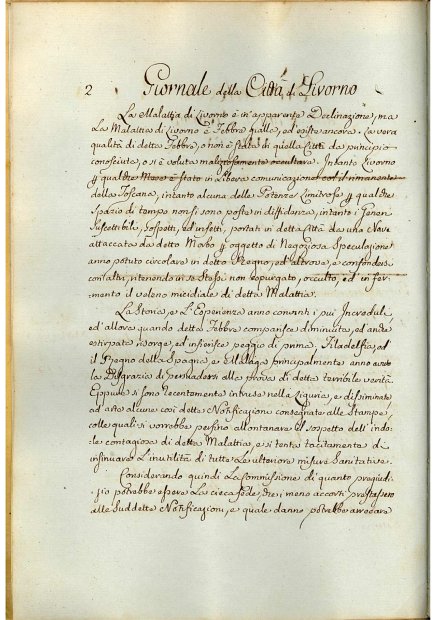 2 Giornale della Città di Livorno
La Malattia di Livorno è in apparenza Declinazione, ma
La Malattia di Livorno è Febbre gialla, ed esiste ancora. La vera
qualità di detta Febbre, o non è stata in quella Città da principio
conosciuta, o si è voluta maliziosamente occultare. Intanto Livorno
p qualche Mese è stato in Libera comunicazione col il rimanente
della Toscana, intanto alcuna delle Potenze Limitrofe p qualche
Spazio di tempo non si sono poste in diffidenza, intanto i Generi
Suscettibili, Sospetti, ed infetti, portati in detta Città da una Nave
attaccata da detto Morbo p oggetto di Negoziosa Speculazione
anno potuto circolare in detto Regno, ed altrove, e confondersi
con altri, ritenendo in se stessi non espurgato, occulto, ed in fer-
mento il veleno micidiale di detta Malattia.
La Storia, e L'Esperienza anno convinti i piu Increduli,
ed allora quando detta Febbre comparisce diminuita, ed anche
estirpata risorge, ed inferisce peggio di prima, Filadelfia, ed
il Regno della Spagna e Malaga principalmente anno avuto
la Disgrazia di persuadersi alla prova di detta terribile verità
Eppure si sono Recentemente intruse nella Liguria, e disseminate
ad arte alcune così dette Notificazioni consegnate alle Stampe,
colle quali si vorrebbe persino allontanare il sospetto dell' indo-
le contagiosa di detta Malattia, e si tenta tacitamente di
insinuare L'inutilità di tutte Le ulteriori misure Sanitarie.
Considerando quindi La Commissione di quanto pregiudi-
zio potrebbe essere La cieca fede, che i meno accorti prestassero
alle Suddette Notificazioni, e quale danno potrebbe arrecare